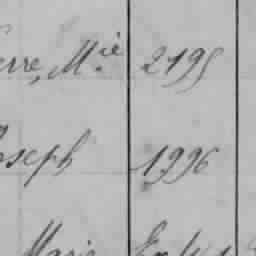 erre, M.ie 2195
oseph 1996
Marie